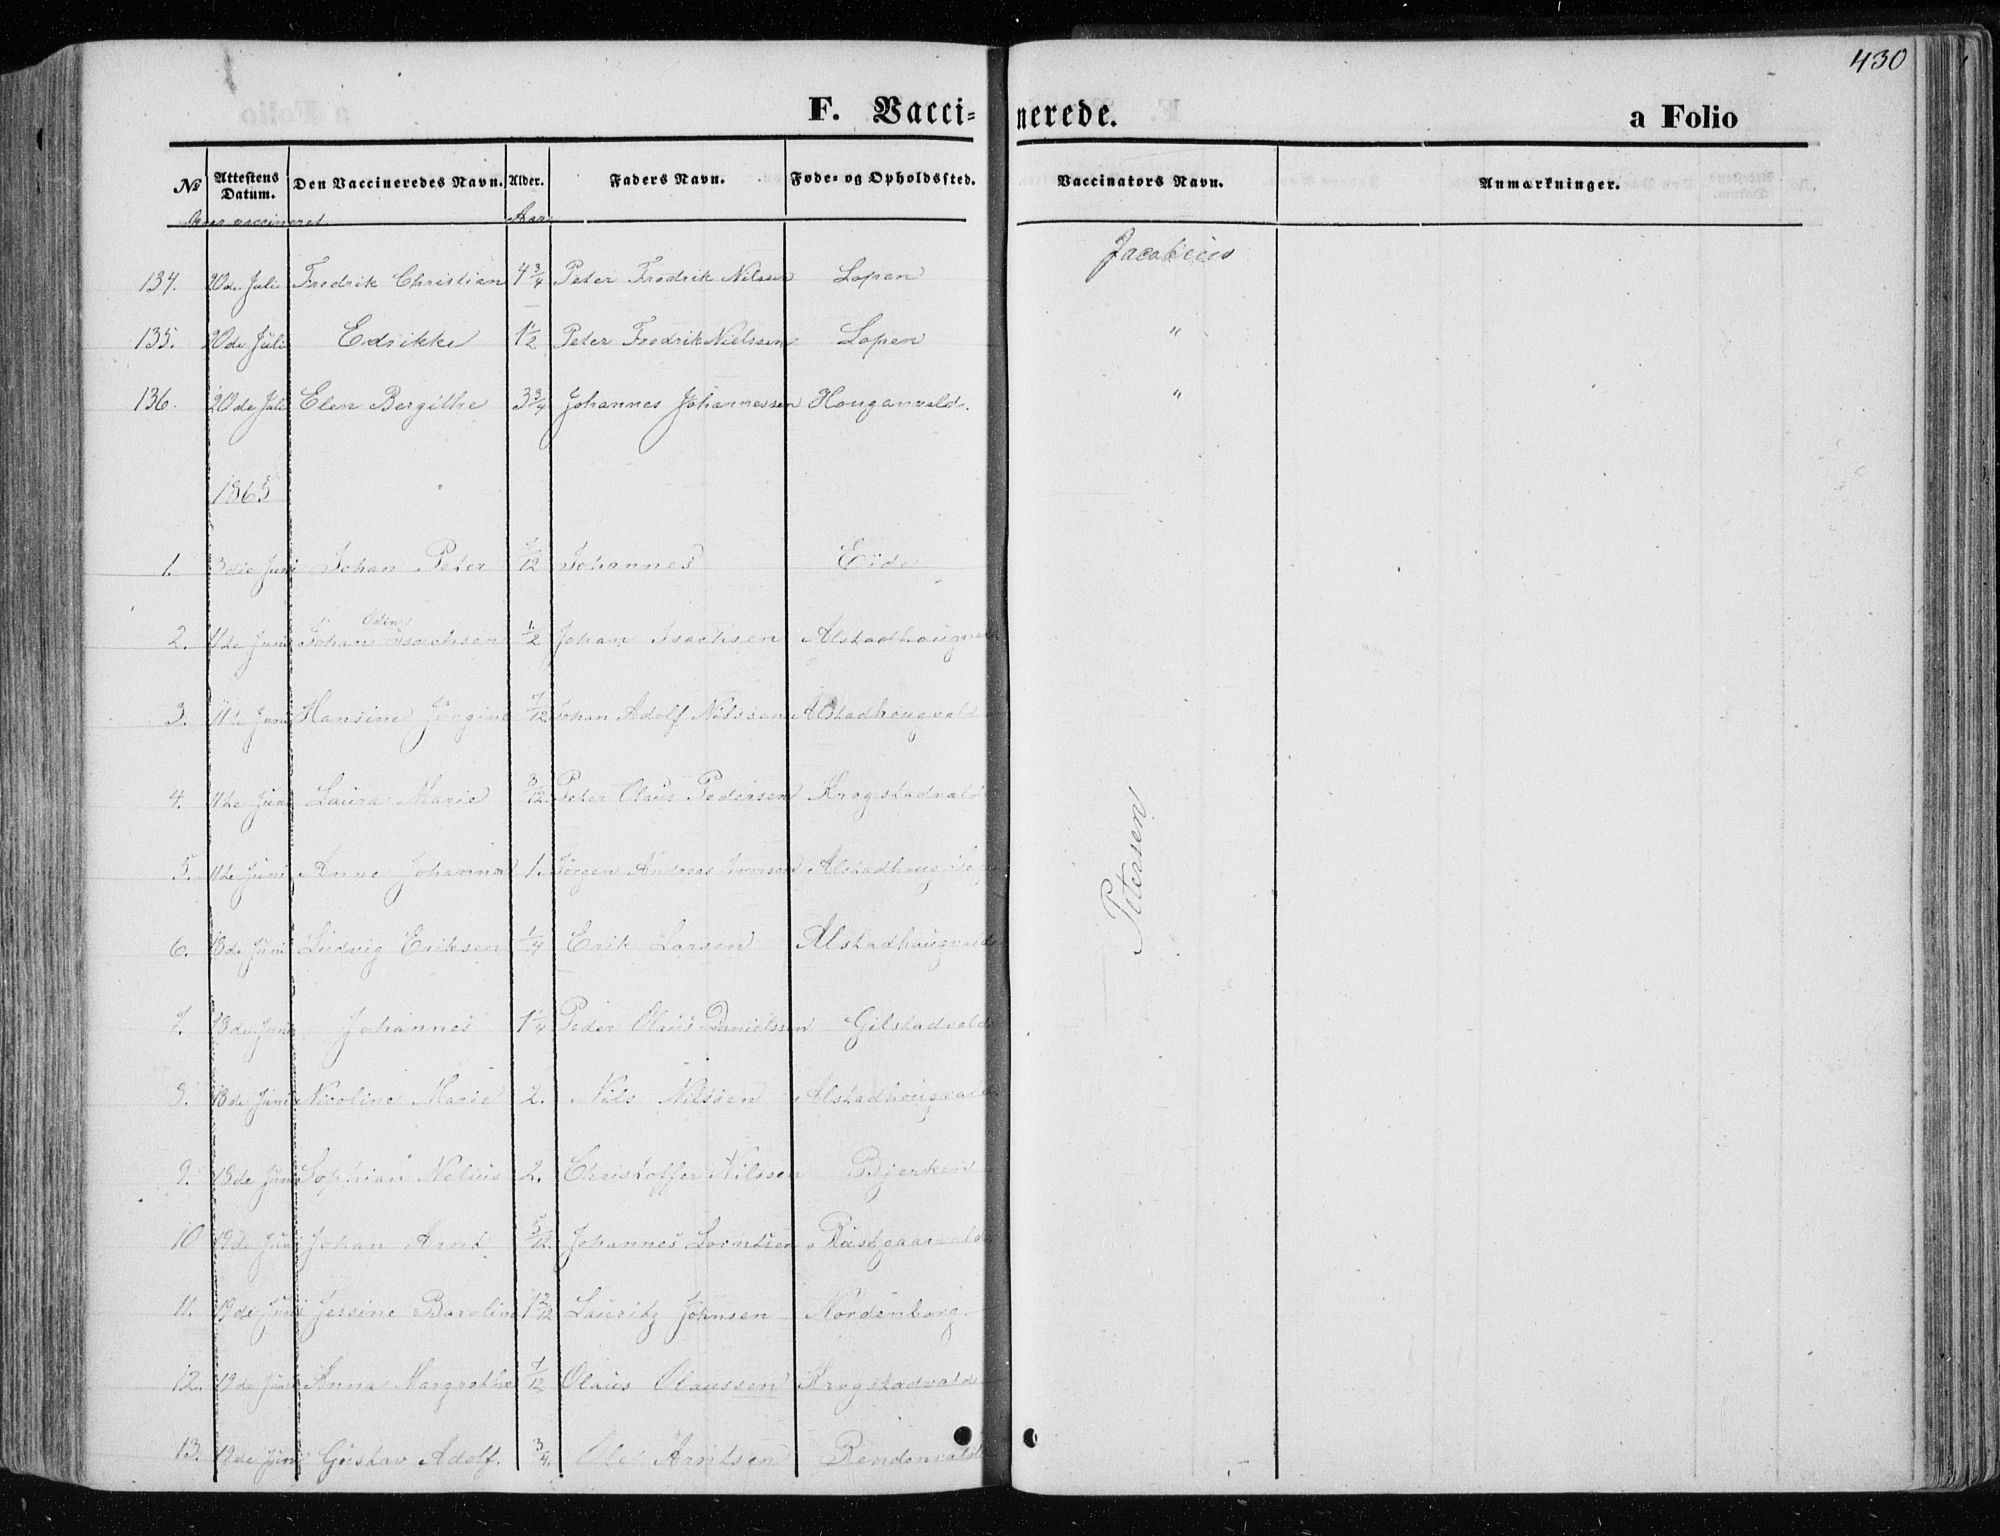 430
F. Vaccinerede. a Folio
No Attestens Datum. Den Vaccineredes Navn. Alder. Faders Navn. Føde- og Opholdssted. Vaccinators Navn. Anmærkninger.
vaccineret Aar
134. 20de Juli Fredrik Christian 4 3/4 Peter Fredrik Nilssen Lopen Jacobeus
135. 20de Juli Edrikke 1 1/2 Peter Fredrik Nielssen Lopen "
136. 20de Juli Elen Bergithe 3 3/4 Johannes Johannessen Houganvald. "
1865
1. 3die Juni Johan Peter 7/12 Johannes Eide
2. 11te Juni Johan Odin Isachsen 1/2 Johan Isachsen Alstadhougvald
3. 11te Juni Hansine Jörgine 7/12 Johan Adolf Nilssen Alstadhougvald
4. 11te Juni Laura Marie 8/12. Peter Olaus Pedersen Krogstadvald
5. 11te Juni Anne Johanna 1. Jörgen Andreas Iversen Alstadhoug
6. 18de Juni Ludvig Eriksen 1/4 Erik Larsen Alstadhaugvald
7. 18de Juni Johannes 1 1/4 Peder Olaus Danielssen Gilstadvald
8. 18de Juni Nicoline Marie 2. Nils Nilssen Alstadhougvald
9. 18de Juni Sophian Nelius 2. Christoffer Nilssen Bjerken
10 19de Juni Johan Arnt 5/12. Johannes Lorntsen Rustgaarvald
11. 19de Juni Jessine Baroline 1 2/12 Lauritz Johnsen Nordenborg.
12. 19de Juni Anna Margrethe 7/12 Olaus Olaussen Krogstadvald
13. 19de Juni Gustav Adolf. 3/4. Ole Arntsen Rendenvald
Petersen